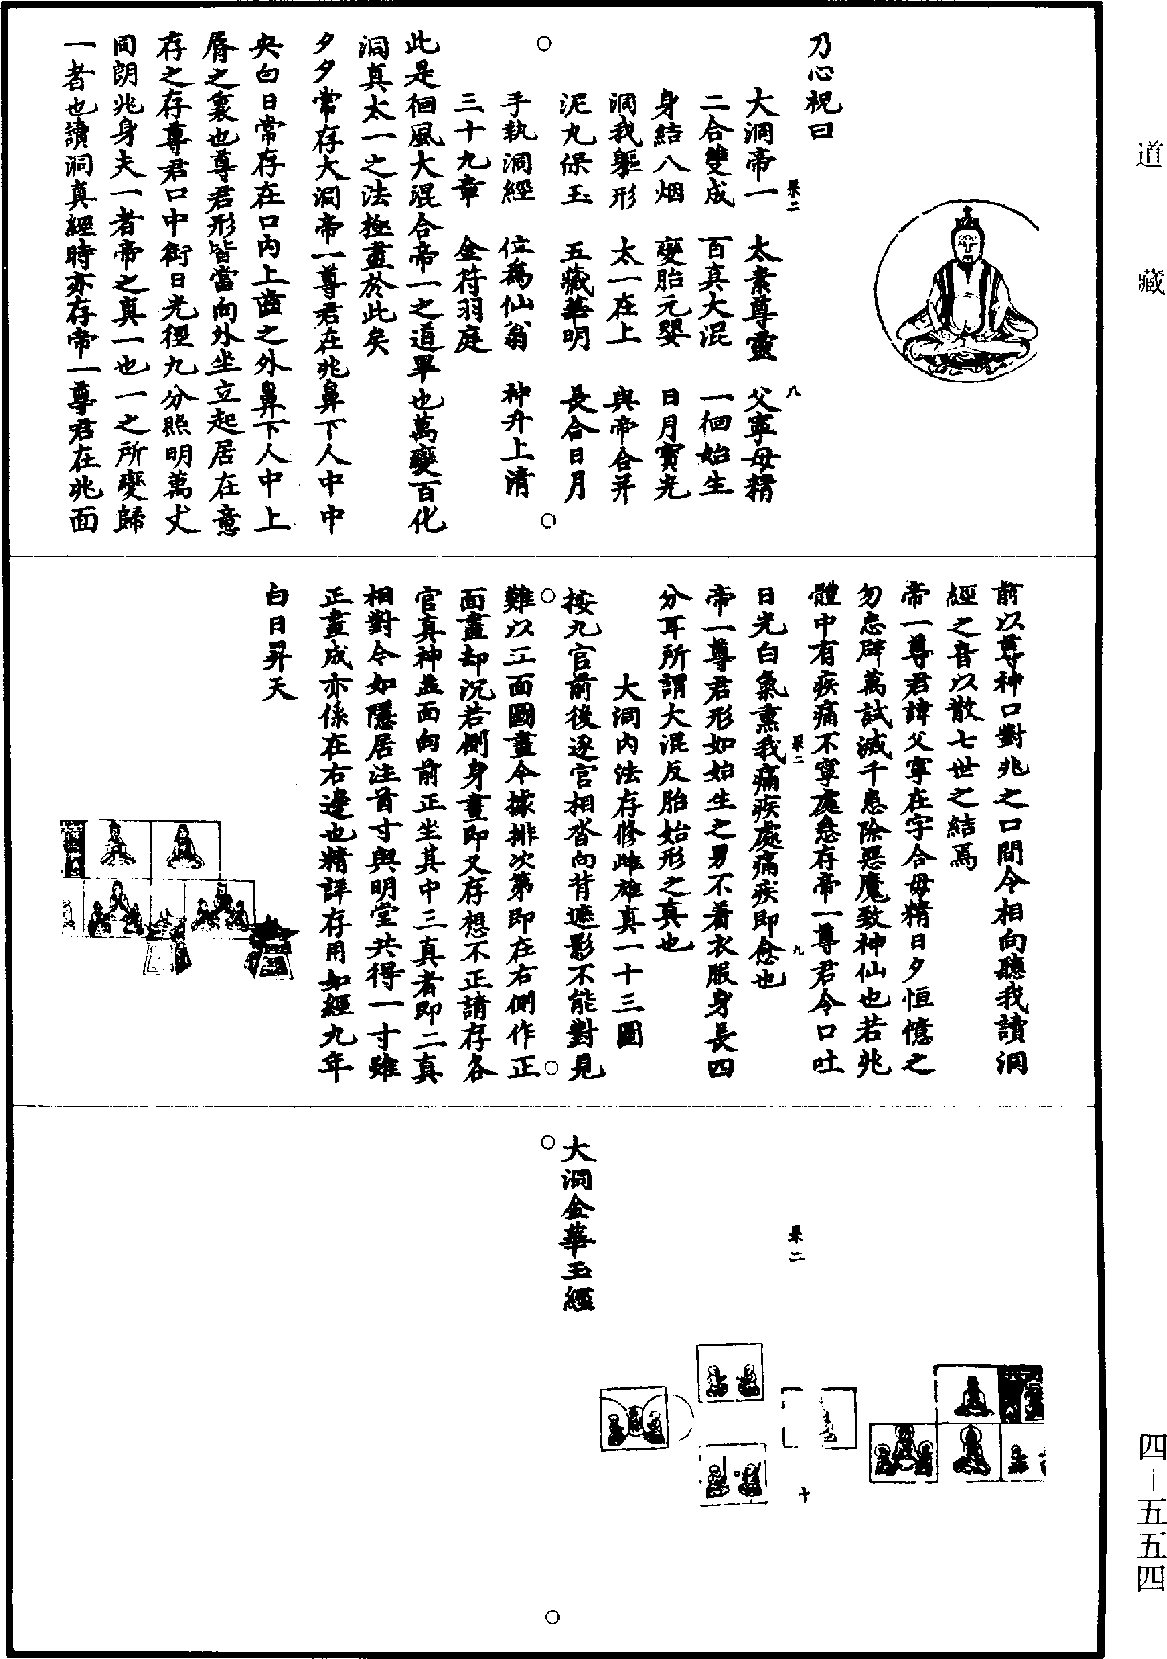 道藏
乃心祝曰
大洞帝一　太素尊靈　父寧母精
二合雙成　百真大混　一徊始生
身結八烟　變胎元嬰　日月寶光
洞我軀形　太一在上　與帝合并
泥丸保玉　五藏華明　長合日月
手執洞經　位為仙翁　神升上清
三十九章　金符羽庭
此是徊風大混合帝一之道畢也萬變百化
洞真太一之法極盡於此矣
夕夕常存大洞帝一尊君在兆鼻下人中中
央白日常存在口內上齒之外鼻下人中上
脣之裏也尊君形皆當向外坐立起居在意
存之存尊君口中銜日光徑九分照明萬丈
洞朗兆身夫一者帝之真一也一之所變歸
一者也讀洞真經時亦存帝一尊君在兆面
八
前以尊神口對兆之口間令相向聽我讀洞
經之音以散七世之結焉
帝一尊君諱父寧在字合母精日夕恒憶之
勿忘辟萬試滅千患除惡魔致神仙也若兆
體中有疾痛不寧處急存帝一尊君令口吐
日光白氣熏我痛疾處痛疾即愈也
帝一尊君形如始生之男不着衣服身長四
分耳所謂大混反胎始形之真也
大洞內法存修雌雄真一十三圖
按九宮前後逐宮相沓向背遮影不能對見
難以工面圖畫今據排次第即在右側作正
面畫却況若側身畫即又存想不正請存各
官真神並面向前正坐其中三真者即二真
相對令如隱居注首寸與明堂共得一寸雖
正畫成亦係在右邊也精詳存用如經九年
白日昇天
九
大洞金華玉經
十
四—五五四